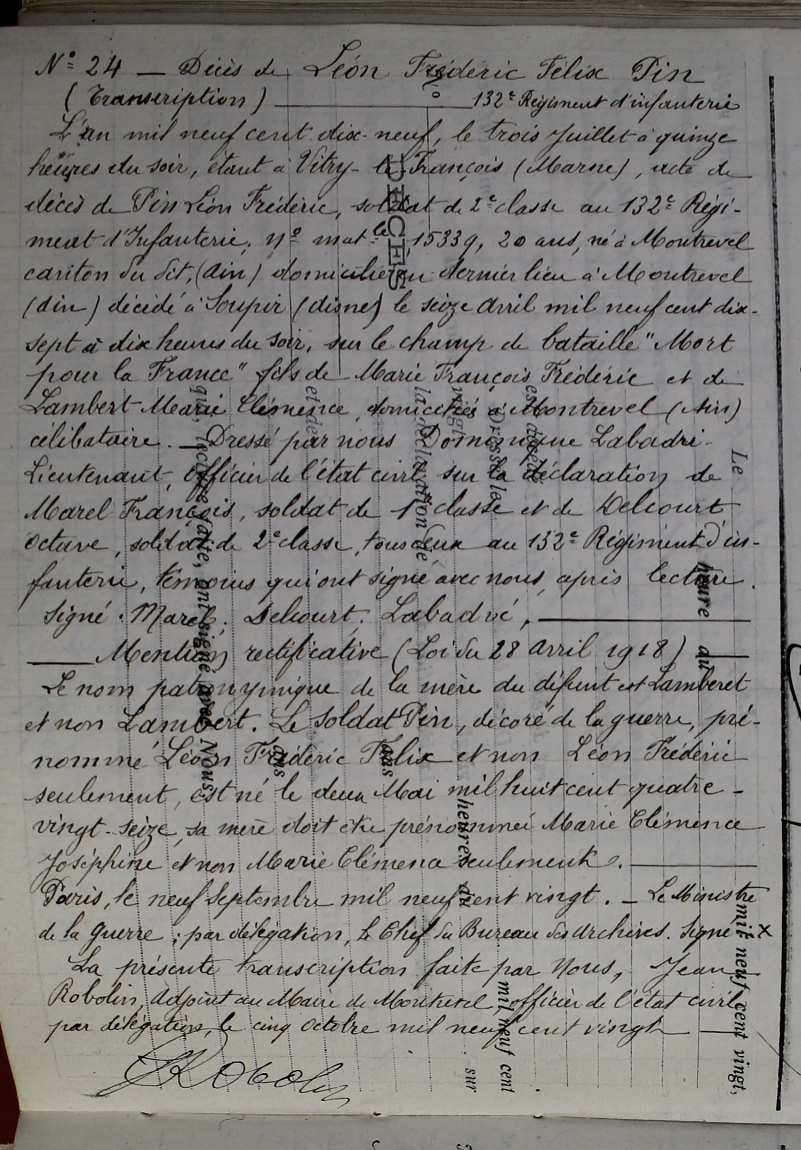 N° 24 — Décès de Léon Frédéric Félix Pin
(Transcription) 132e Régiment d'infanterie
L'an mil neuf cent dix-neuf, le trois Juillet à quinze
heures du soir, étant à Vitry-le-François (Marne), acte de
décès de Pin Léon Frédéric, soldat de 2e classe au 132e Régi-
ment d'Infanterie, N° mat le 15339, 20 ans, né à Montrevel
canton du dit, (Ain) domicilié en dernier lieu à Montrevel
(Ain) décédé à Soupir (Aisne) le seize Avril mil neuf cent dix-
sept à dix heures du soir, sur le champ de bataille "Mort
pour la France" fils de Marie François Frédéric et de
Lambert Marie Clémence, domiciliés à Montrevel (Ain)
célibataire. — Dressé par nous Dominique Labadri-
Lieutenant, Officier de l'état civil, sur la déclaration de
Marel François, soldat de 1e classe et de Delcourt
Octave, soldat de 2e classe, tous deux au 132e Régiment d'in-
fanterie, témoins qui ont signé avec nous, après lecture.
Signé : Marel. Delcourt. Labadré,
Mention rectificative (Loi du 28 Avril 1918)
Le nom patronymique de la mère du défunt est Lamberet
et non Lambert. Le soldat Pin, décoré de la guerre, pré-
nommé Léon Frédéric Félix et non Léon Frédéric
seulement, est né le deux Mai mil huit cent quatre-
vingt-seize, sa mère doit être prénommée Marie Clémence
Joséphine et non Marie Clémence seulement.
Paris, le neuf Septembre mil neuf cent vingt. — Le Ministre
de la Guerre ; par délégation, le Chef du Bureau des Archives. Signé : X
La présente transcription faite par Nous, Jean
Robolin, Adjoint au Maire de Montrevel, officier de l'état civil
par délégation, le cinq Octobre mil neuf cent vingt
JRobolin
DÉCÈS
Le
heure du
heures du
mil neuf cent vingt,
mil neuf cent
sur
est décédé
Dressé le
la déclaration de
et de
ans
ans
qui, lecture faite, ont signé avec Nous